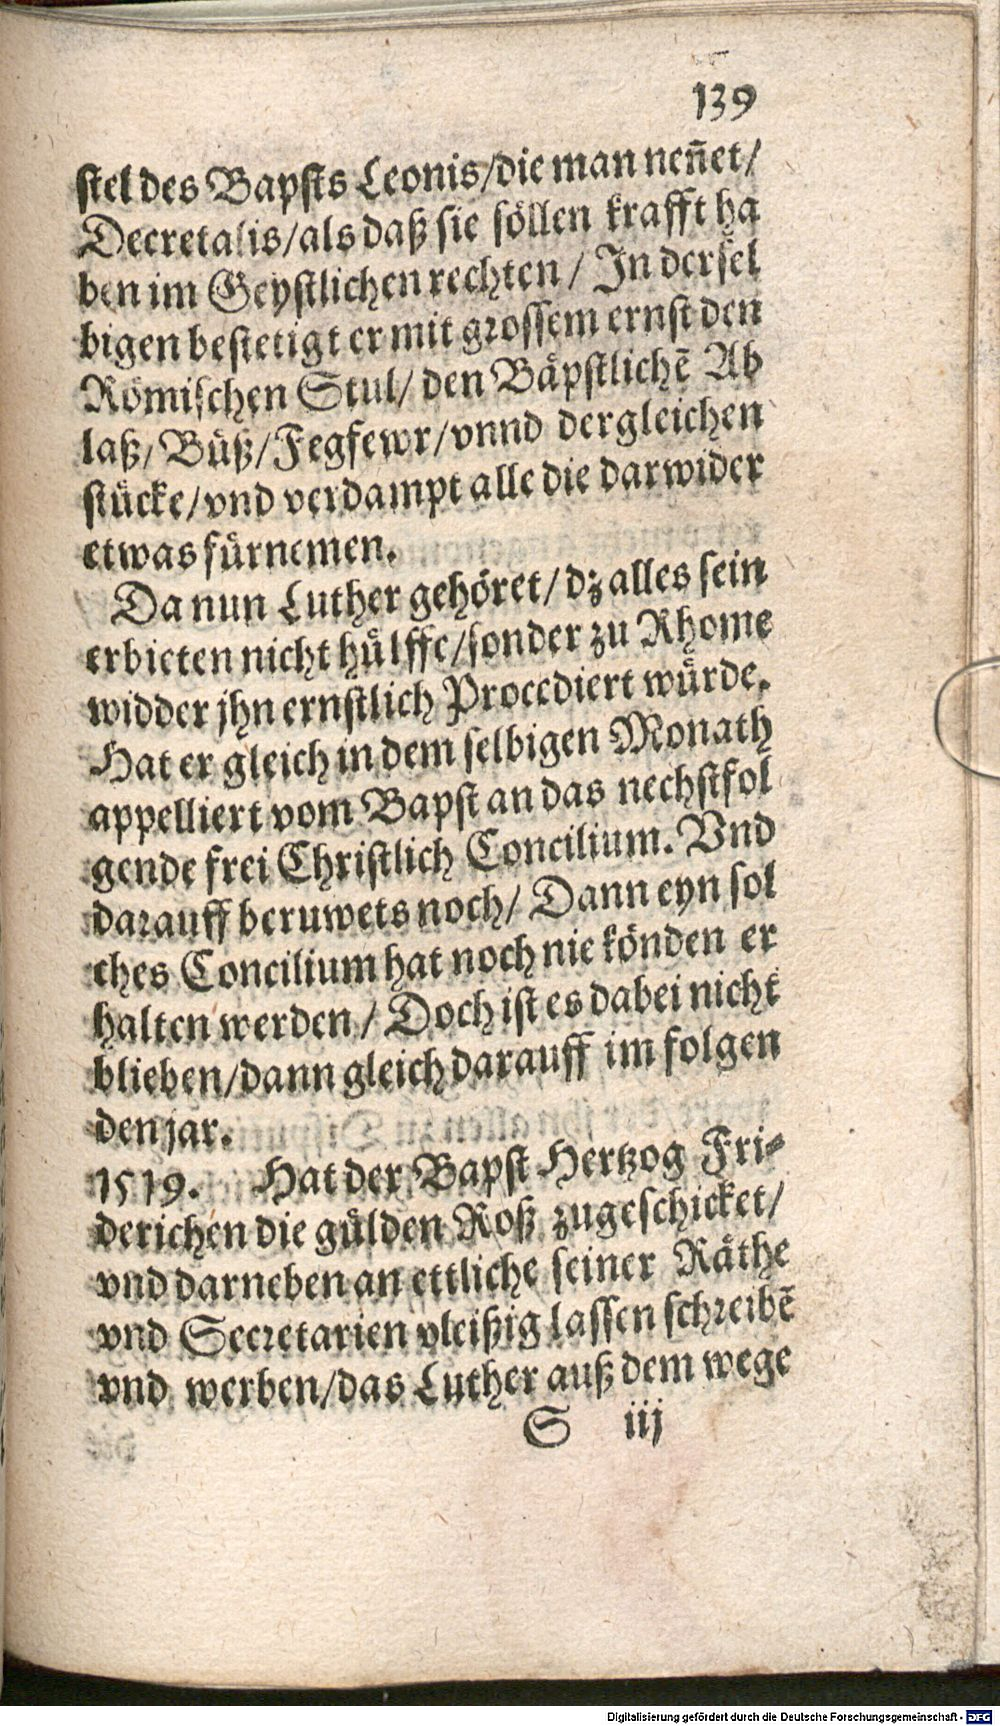 139
stel des Bapsts Leonis/die man neñet/
Decretalis/als daß sie söllen krafft ha
ben im Geystlichen rechten / In dersel
bigen bestetigt er mit grossem ernst den
Römischen Stul/ den Bäpstlichē Ab
laß/ Büß/Fegfewr/vnnd dergleichen
stücke/vnd verdampt alle die darwider
etwas fürnemen.
Da nun Luther gehöret/ dz alles sein
erbieten nicht hülffe/sonder zu Rhome
widder jhn ernstlich Procediert würde.
Hat er gleich in dem selbigen Monath
appelliert vom Bapst an das nechstfol
gende frei Christlich Concilium. Vnd
darauff beruwets noch/ Dann eyn sol
ches Concilium hat noch nie könden er
halten werden / Doch ist es dabei nicht
blieben/dann gleich darauff im folgen
den jar.
1519. Hat der Bapst Hertzog Fri⸗
derichen die gülden Roß zugeschicket/
vnd darneben an ettliche seiner Räthe
vnd Secretarien vleißig lassen schreibē
vnd werben/das Luther auß dem wege
S iij
Digitalisierung gefördert durch die Deutsche Forschungsgemeinschaft - DFG